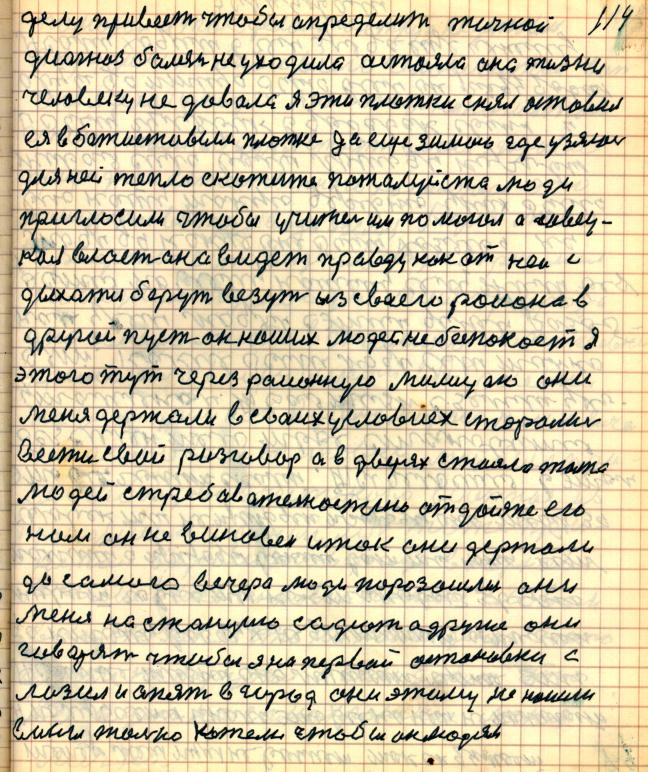 делу привест чтобы определит точной 114
диогноз болезн не уходила остояла она жизни
человеку не довала я эти плотки снял оставил
ея вботистовым плотке да еще зимои где узялос
для ней тепло скожите пожалуйста люди
приглосили чтобы учител им помогал а совец-
кая власт она видет правду как от неи с
дыхати берут везут из своего роиона в
другой пуст он наших людей не беспокоет я
этого тут через районную милицию они
меня держали в своих условиех сторалис
вести свой розговор а в дверях стояло толпа
людей с требавателностию отдойте его
ном он не виновен и так они держали
до самого вечера люди порозошли они
меня на станцию садют а друже они
говарят чтобы я на первой остоновки с
лозил и опят в город они этиму не ношли
вмысл толко хотели чтобы он людям